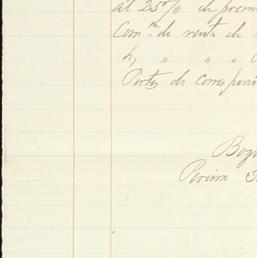 al 25% de prem
Com.ⁿ de venta de
" " "
Portes de correspon
Bogo
Pereira